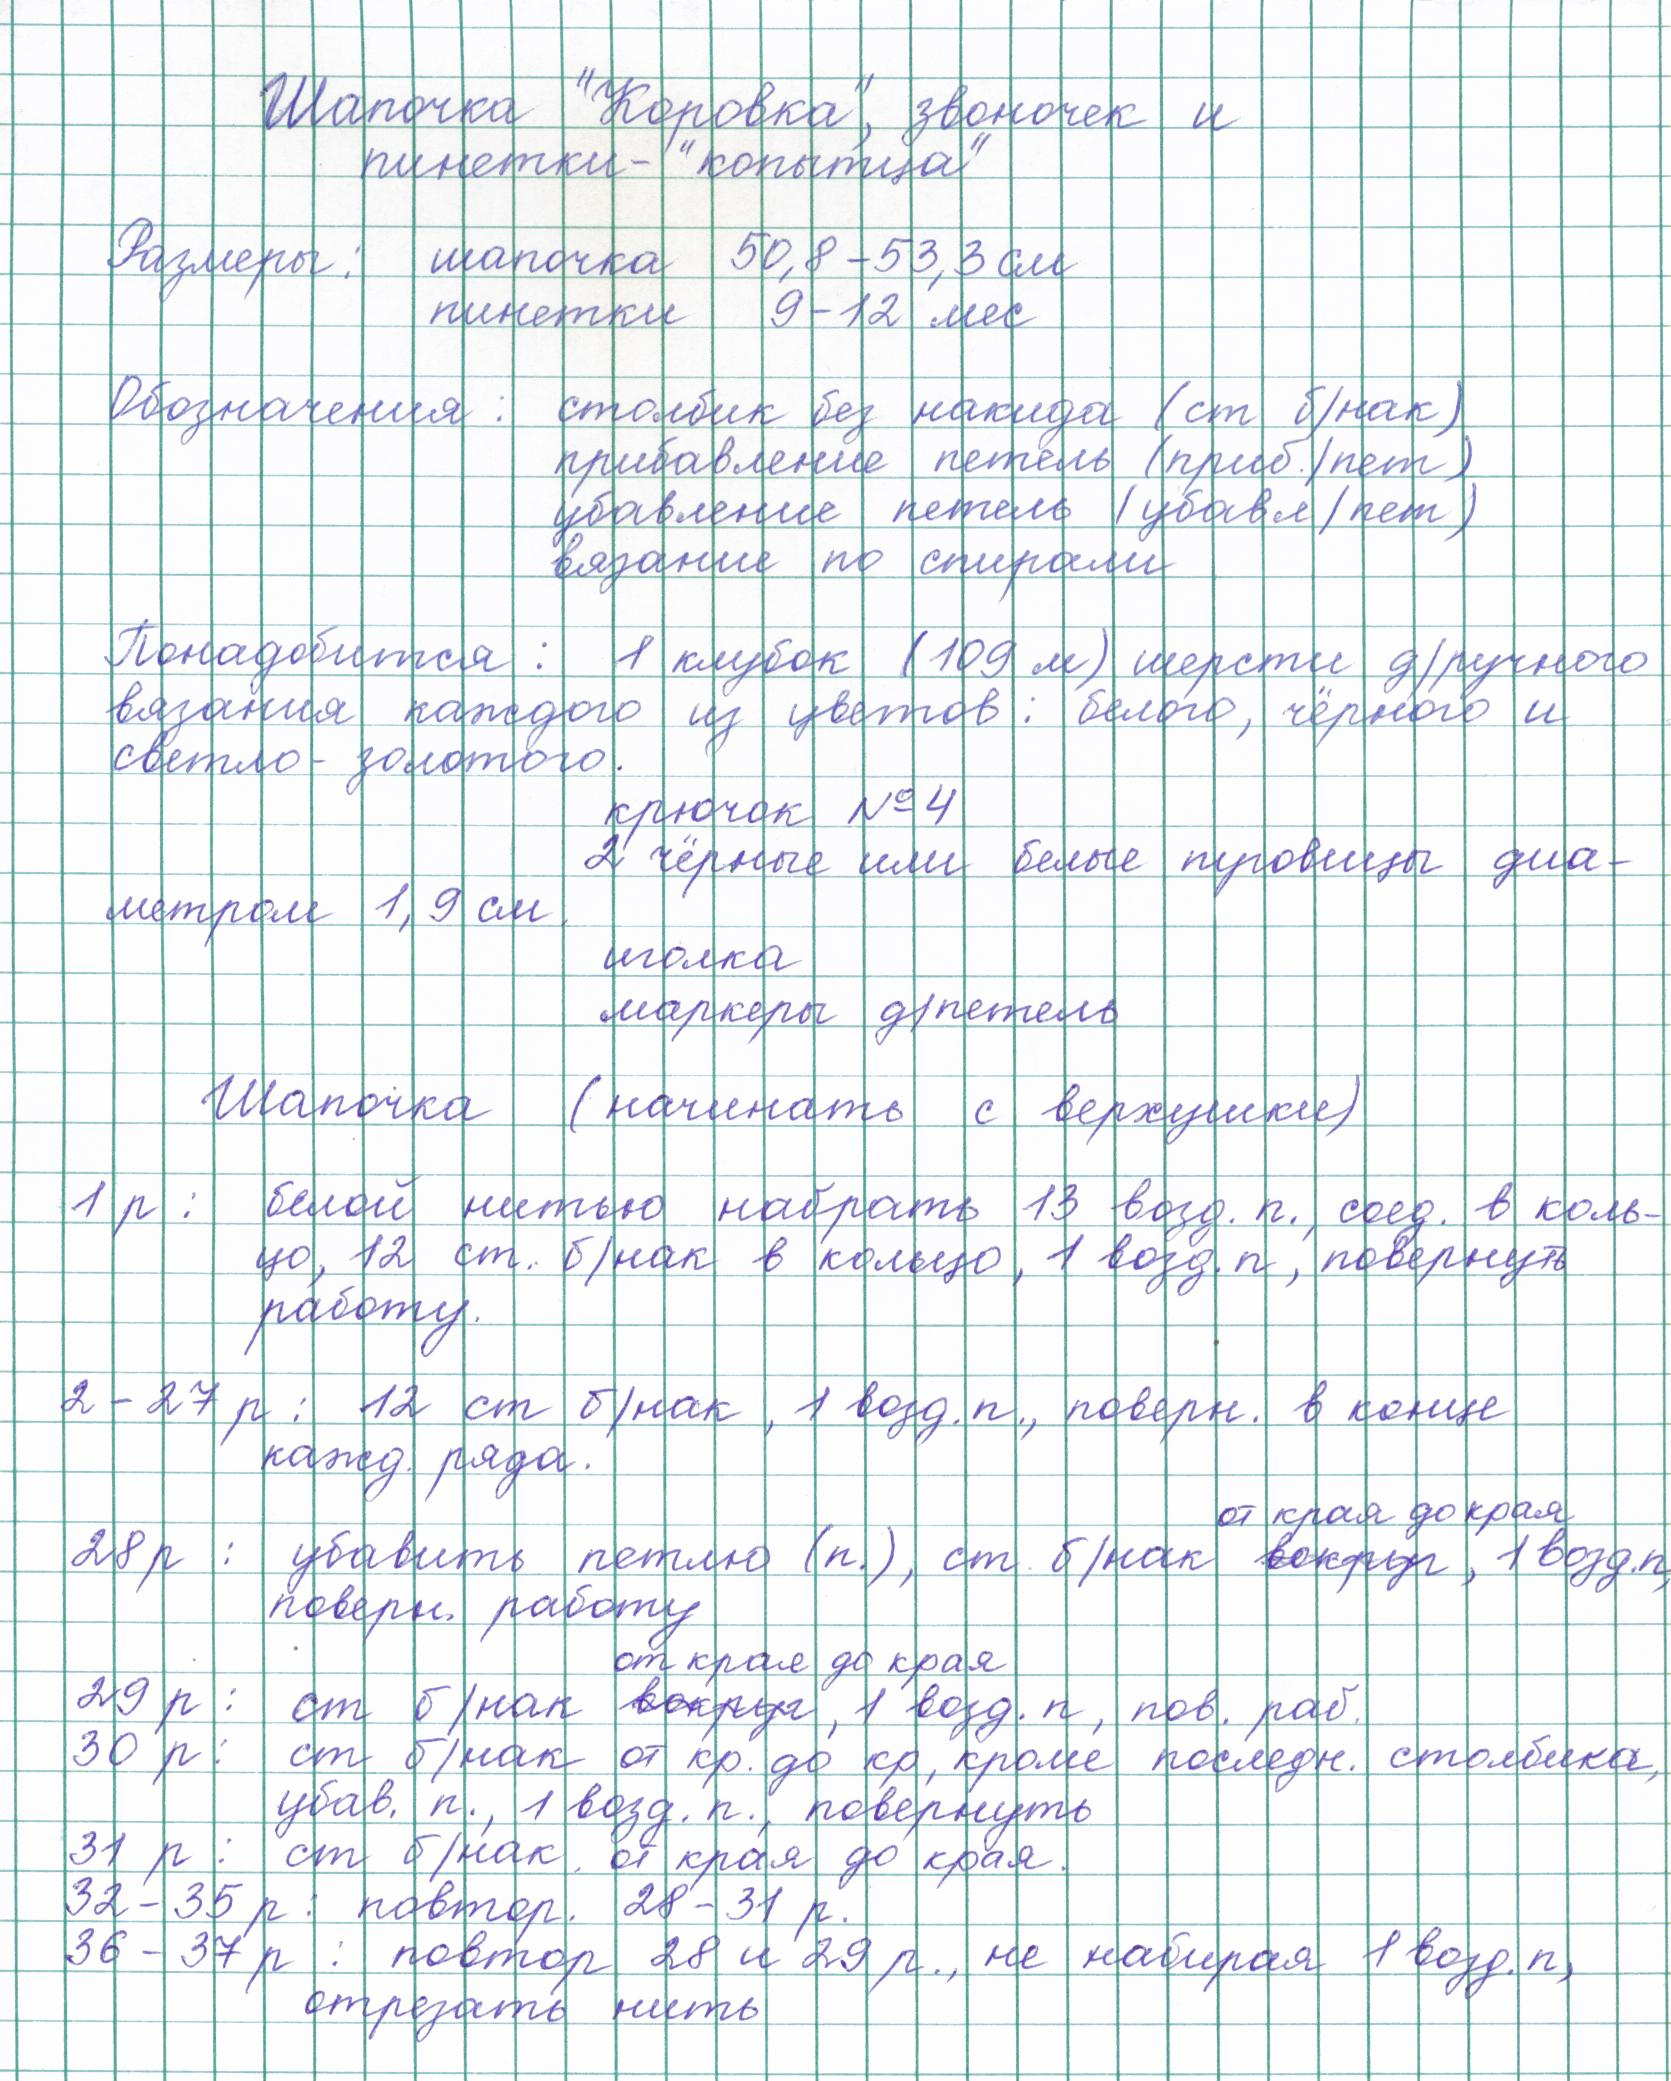 Шапочка "Коровка", звоночек и
пинетки-"копытца"
Размеры: шапочка 50,8-53,3 см
пинетки 9-12 мес
Обозначения: столбик без накида (ст б/нак)
прибавление петель (приб./пет)
убавление петель (убавл/пет)
вязание по спирали
Понадобится: 1 клубок (109 м) шерсти д/ручного
вязания каждого из цветов: белого, чёрного и
светло-золотого.
крючок №4
2 чёрные или белые пуговицы диа-
метром 1,9 см.
иголка
маркеры д/петель
Шапочка (начинать с верхушки)
1 р: белой нитью набрать 13 возд. п., соед. в коль-
цо, 12 ст. б/нак в кольцо, 1 возд. п, повернуть
работу.
2-27 р: 12 ст б/нак, 1 возд. п., поверн. в конце
кажд. ряда.
от края до края
28 р: убавить петлю (п.), ст. б/нак вокруг, 1 возд. п,
поверн. работу
от края до края
29 р: ст б/нак вокруг, 1 возд. п, пов. раб.
30 р: ст б/нак от кр. до кр, кроме последн. столбика,
убав. п., 1 возд. п., повернуть
31 р: ст б/нак. от края до края.
32-35 р: повтор. 28-31 р.
36-37 р: повтор 28 и 29 р., не набирая 1 возд. п,
отрезать нить